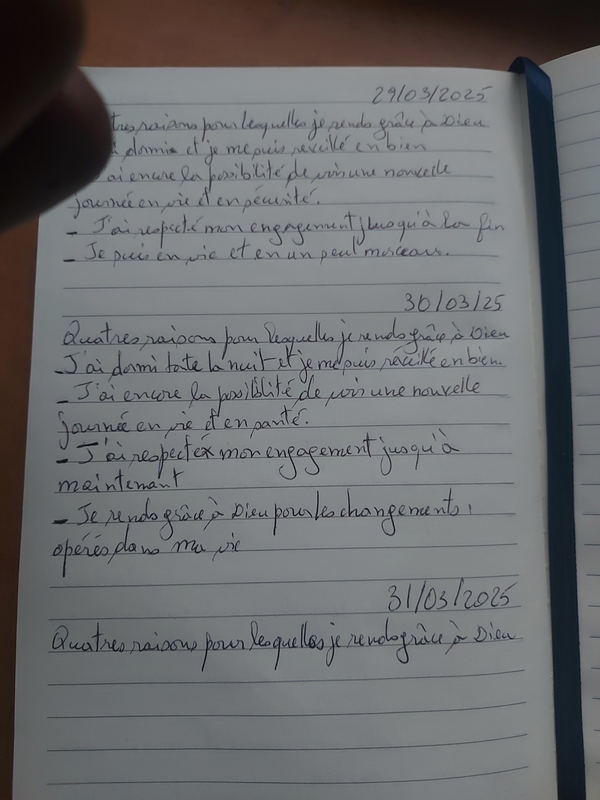 29/03/2025
tres raisons pour lesquelles je rends grâce à Dieu
dormis et je me suis réveillé en bien
ai encore la possibilité de voir une nouvelle
journée en vie et en sécurité.
- J'ai respecté mon engagement jusqu'à la fin
- Je suis en vie et en un seul morceau.
30/03/25
Quatres raisons pour lesquelles je rends grâce à Dieu
- J'ai dormi toute la nuit et je me suis réveillé en bien.
- J'ai encore la possiblité de voir une nouvelle
journée en vie et en santé.
- J'ai respecté mon engagement jusqu'à
maintenant
- Je rends grâce à Dieu pour les changements
opérés dans ma vie
31/03/2025
Quatres raisons pour lesquelles je rends grâce à Dieu